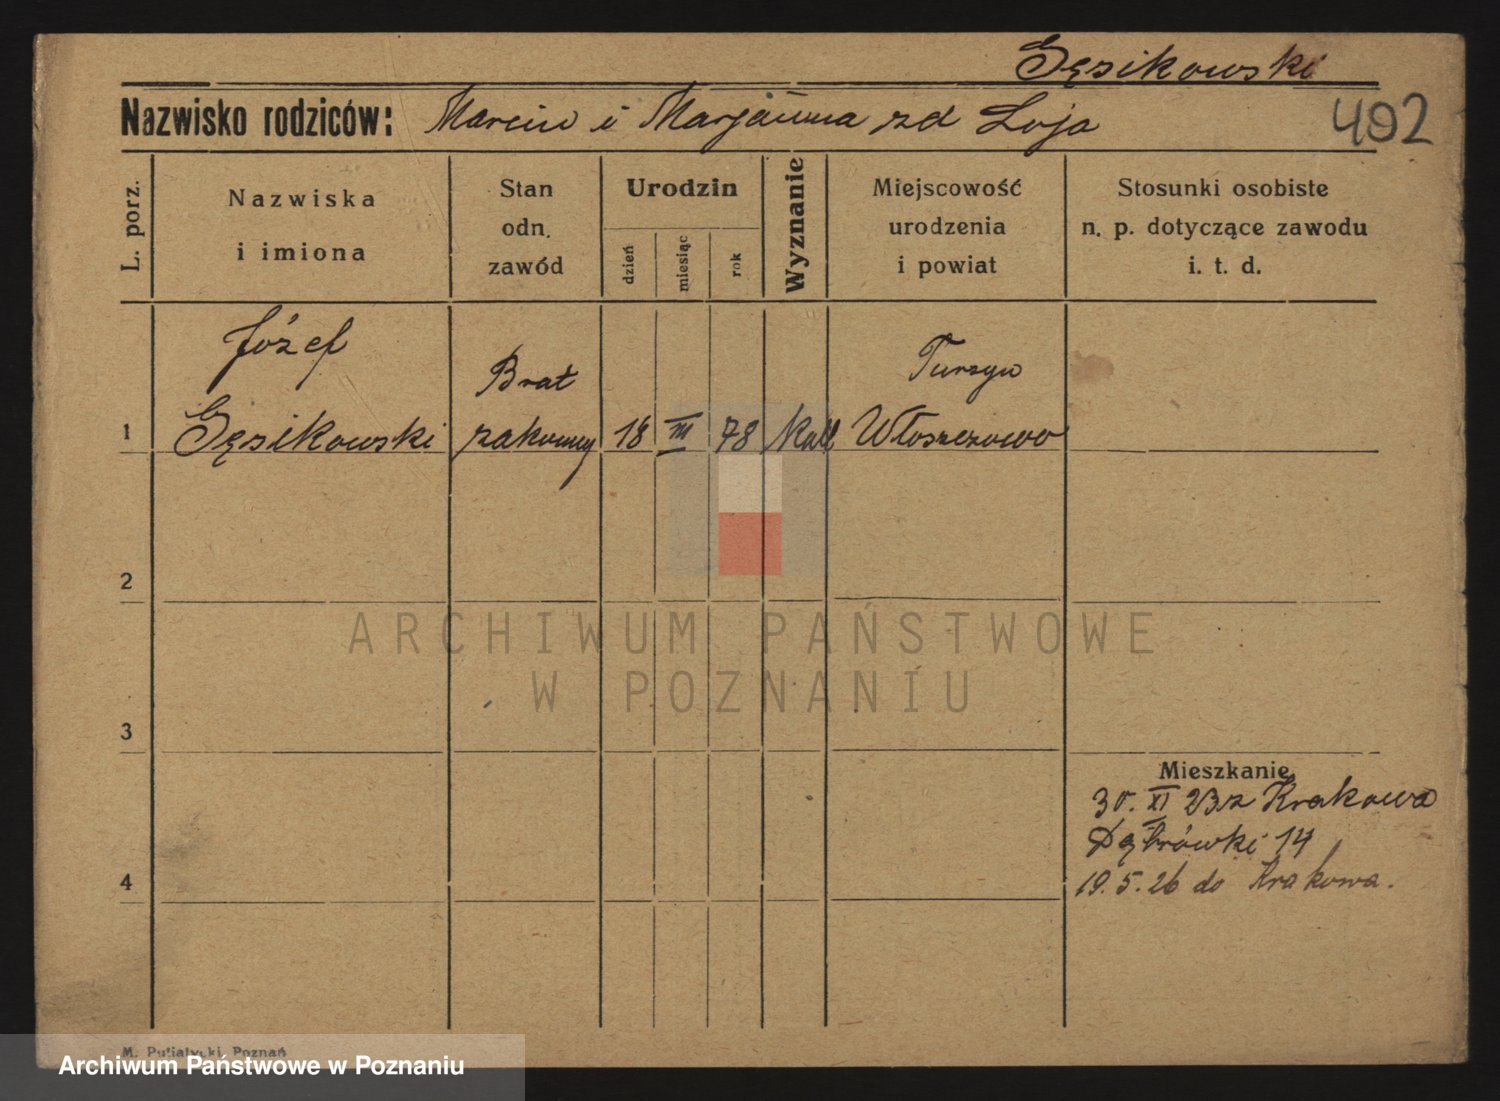 Gęsikowski
Nazwisko rodziców: Marcin i Marjanna zd Loja
402
L. porz.
Nazwiska
i imiona
Stan
odn.
zawód
Urodzin
dzień
miesiąc
rok
Wyznanie
Miejscowość
urodzenia
i powiat
Stosunki osobiste
n. p. dotyczące zawodu
i. t. d.
Józef
Brat
Turzyn
1 Gęsikowski zakonny 18 III 78 Kat Włoszczowo
2
ARCHIWUM PAŃSTWOWE
W POZNANIU
3
Mieszkanie
30. XI 23 z Krakowa
Dąbrówki 14
4
19.5.26 do Krakowa.
M. Putiatycki, Poznań
Archiwum Państwowe w Poznaniu